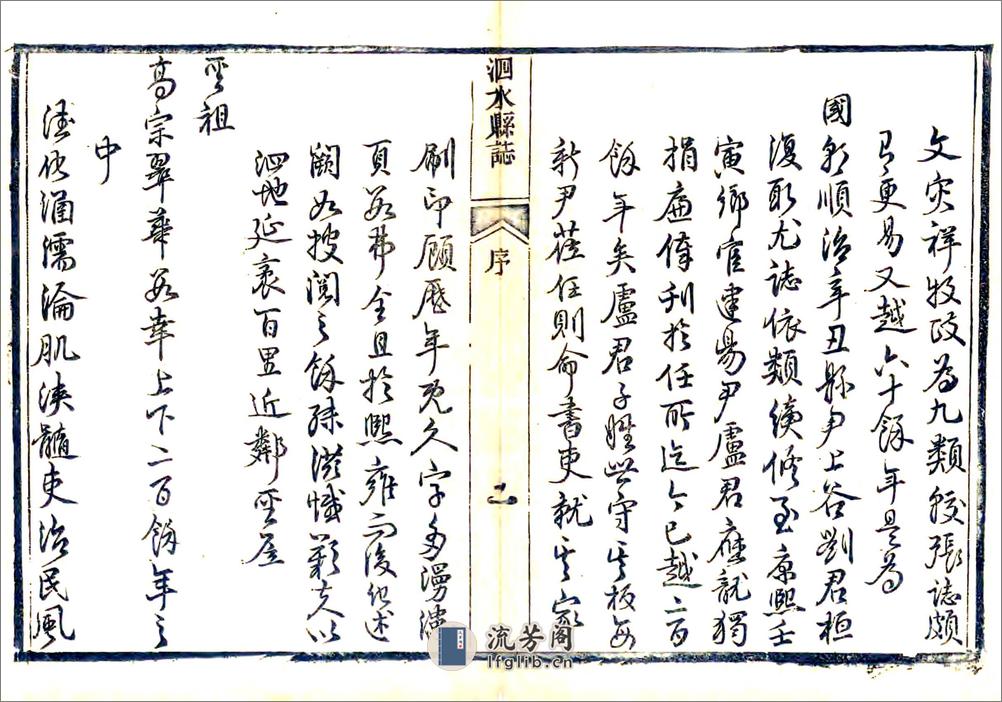 文灾祥牧政为九類較張誌頗
有更易又越六十餘年是為
國朝順治辛丑縣尹上谷劉君桓
復取尤誌依類續修至康熙壬
寅鄉官建昌尹盧君應龍獨
捐廉俸刊於任所迄今已越二百
餘年矣盧君子姓世守其板每
新尹蒞任則命書吏就其家
泗水縣誌
序
二
刷印顧歷年既久字多漫漶
頁多弗全且於熙雍而後紀述
闕如披閱之餘殊滋憾歉夫以
泗地延袤百里近鄰聖居
聖祖
高宗翠華數幸上下二百餘年之
中
德化涵濡淪肌浹髓吏治民風
流芳阁
lfglib.cn